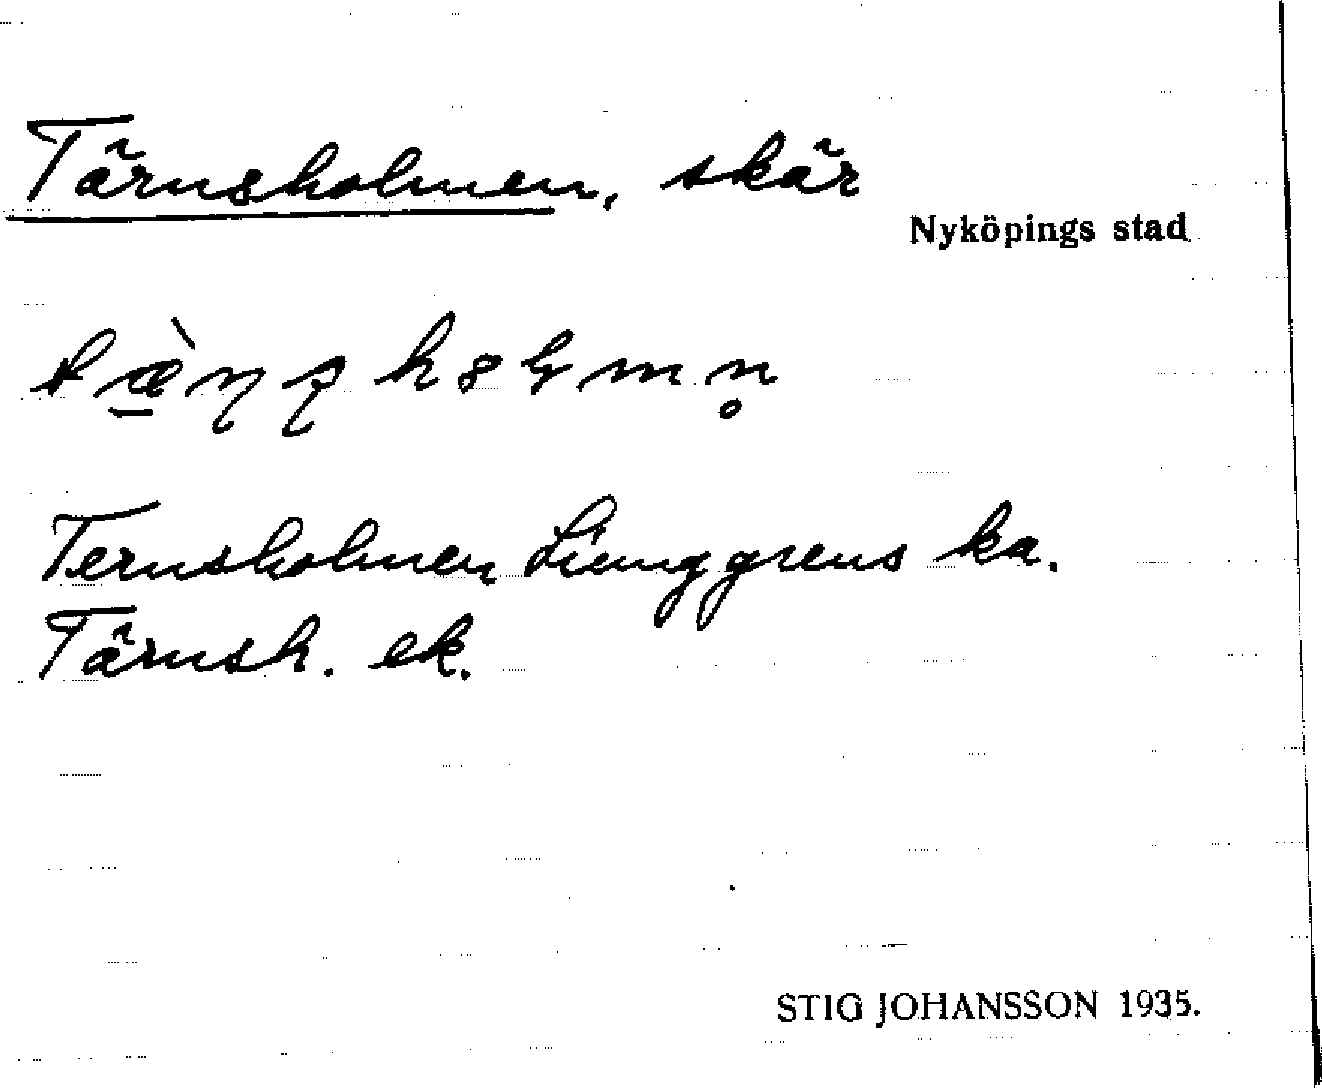 Tärnsholmen, skär
Nyköpings stad
Ternsholmen Liunggrens ka.
Tärnsh. ek.
STIG JOHANSSON 1935.